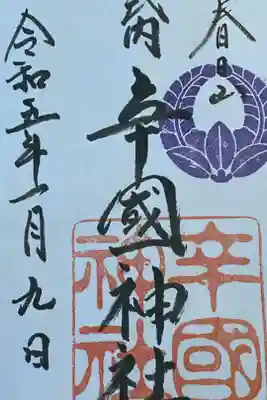 春日山
内 辛國神社
令和五年一月九日
辛國
神社